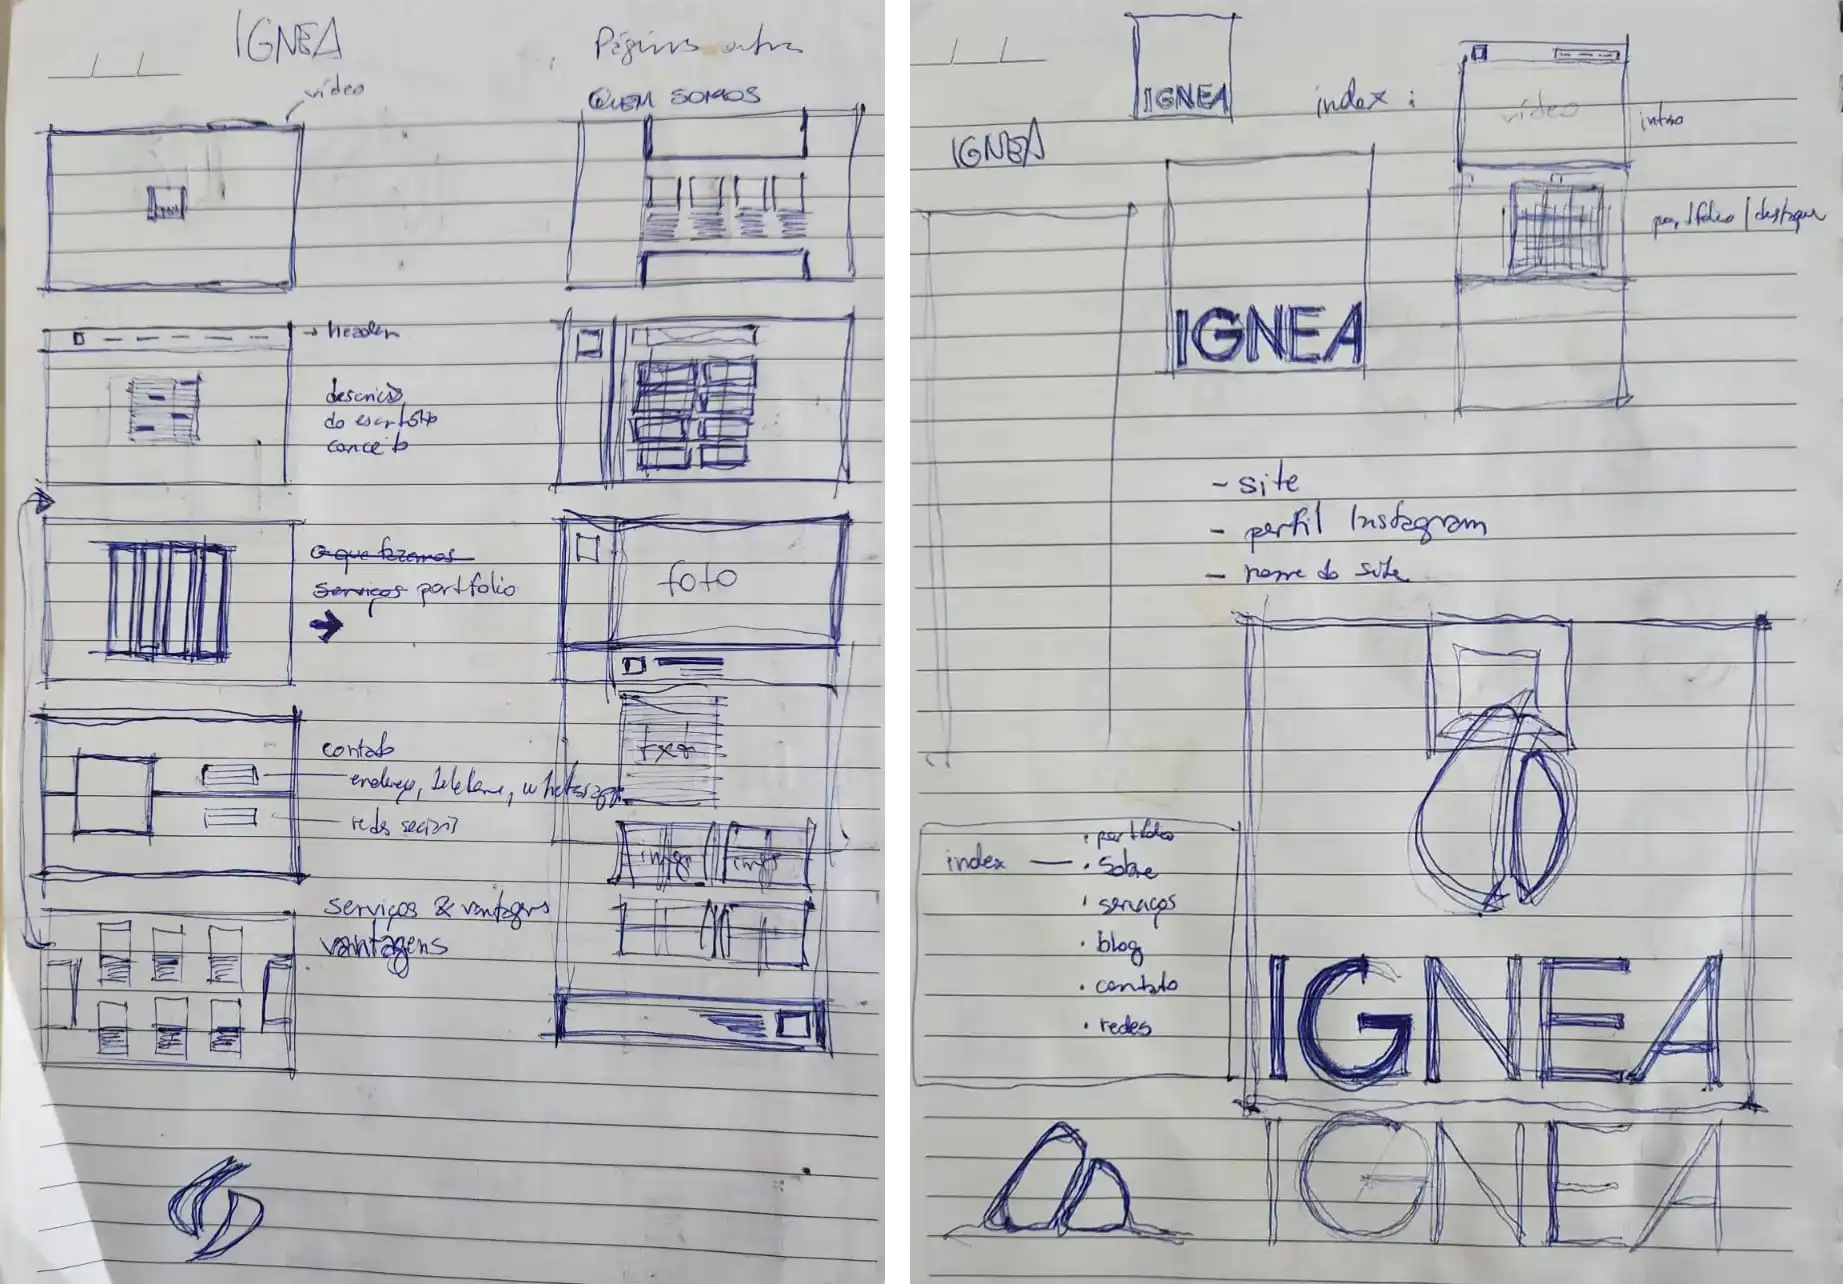 IGNEA
Páginas
vídeo
QUEM SOMOS
→ header
descrição
do escritório
conceito
foto
o que fazemos
serviços portfolio
txt
contato
endereço, telefone, whatsapp
redes sociais
info info
serviços & vantagens
vantagens
IGNEA
index :
vídeo
intro
IGNEA
portfolio / destaque
IGNEA
- site
- perfil Instagram
- nome do site
index — · portfolio
· Sobre
· serviços
· blog
· contato
· redes
IGNEA
IGNEA